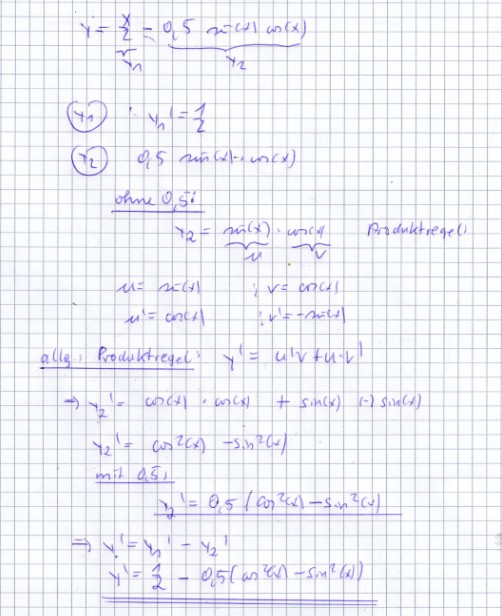 y = x/2 - 0,5 sin(x) cos(x)
y1 y2
y1 : y1' = 1/2
y2 0,5 sin(x) · cos(x)
ohne 0,5:
y2 = sin(x) · cos(x) Produktregel:
u v
u = sin(x) ; v = cos(x)
u' = cos(x) ; v' = -sin(x)
allg.: Produktregel: y' = u'v + u·v'
⇒ y2' = cos(x) · cos(x) + sin(x) (-) sin(x)
y2' = cos²(x) - sin²(x)
mit 0,5:
y2' = 0,5 (cos²(x) - sin²(x)
⇒ y' = y1' - y2'
y' = 1/2 - 0,5(cos²(x) - sin²(x))